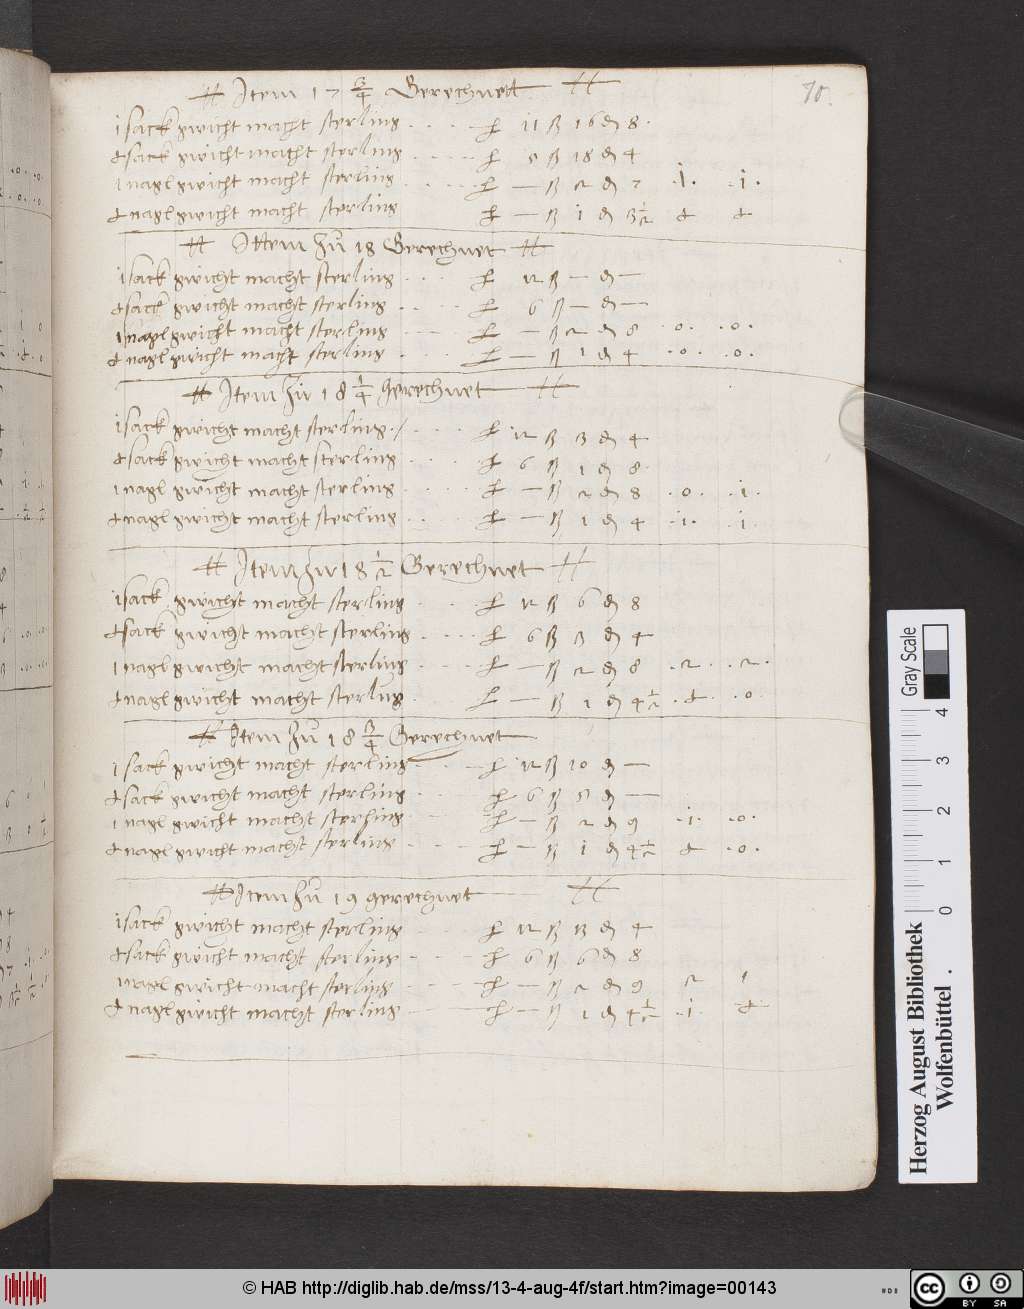 70.
Item 17 3/4 Gerechnett
1 sack gwicht macht sterling . . . . ₰ 11 ß 16 ₰ 8 .
½ sack gwicht macht sterling . . . . ₰ 5 ß 18 ₰ 4
1 nagl gwicht macht sterling . . . . ₰ — ß 2 ₰ 7 . 1 . . 1 .
½ nagl gwicht macht sterling ₰ — ß 1 ₰ 3 1/2 ½ ½
Ittem Zu 18 Gerechnet
1 sack gwicht macht sterling . . . ₰ 12 ß — ₰ —
½ sack gwicht macht sterling . . . ₰ 6 ß — ₰ —
1 nagl gwicht macht sterling . . . ₰ — ß 2 ₰ 8 . 0 . . 0 .
½ nagl gwicht macht sterling . . . ₰ — ß 1 ₰ 4 . 0 . . 0 .
Item Zu 18 1/4 gerechnet
1 sack gwicht macht sterling . . . . ₰ 12 ß 3 ₰ 4
½ sack gwicht macht sterling . . . . ₰ 6 ß 1 ₰ 8 .
1 nagl gwicht macht sterling . . . . ₰ — ß 2 ₰ 8 . 0 . . 1 .
½ nagl gwicht macht sterling . . . . ₰ — ß 1 ₰ 4 . 1 . . 1
Item Zu 18 1/2 Gerechnet
1 sack gwicht macht sterling . . . . ₰ 12 ß 6 ₰ 8
½ sack gwicht macht sterling . . . . ₰ 6 ß 3 ₰ 4
1 nagl gwicht macht sterling . . . . ₰ — ß 2 ₰ 8 . 2 . . 2 .
½ nagl gwicht macht sterling . . . . ₰ — ß 1 ₰ 4 1/2 . ½ . . 0 .
Item Zu 18 3/4 Gerechnet
1 sack gwicht macht sterling . . . . ₰ 12 ß 10 ₰ —
½ sack gwicht macht sterling . . . . ₰ 6 ß 5 ₰ —
1 nagl gwicht macht sterling . . . . ₰ — ß 2 ₰ 9 . 1 . . 0 .
½ nagl gwicht macht sterling . . . . ₰ — ß 1 ₰ 4 1/2 ½ . 0 .
Item Zu 19 gerechnet
1 sack gwicht macht sterling . . . . ₰ 12 ß 13 ₰ 4
½ sack gwicht macht sterling . . . . ₰ 6 ß 6 ₰ 8
1 nagl gwicht macht sterling . . . . ₰ — ß 2 ₰ 9 2 1
½ nagl gwicht macht sterling ₰ — ß 1 ₰ 4 1/2 . 1 . ½
Gray Scale
0 1 2 3 4
Herzog August Bibliothek
Wolfenbüttel .
© HAB http://diglib.hab.de/mss/13-4-aug-4f/start.htm?image=00143
CC BY SA